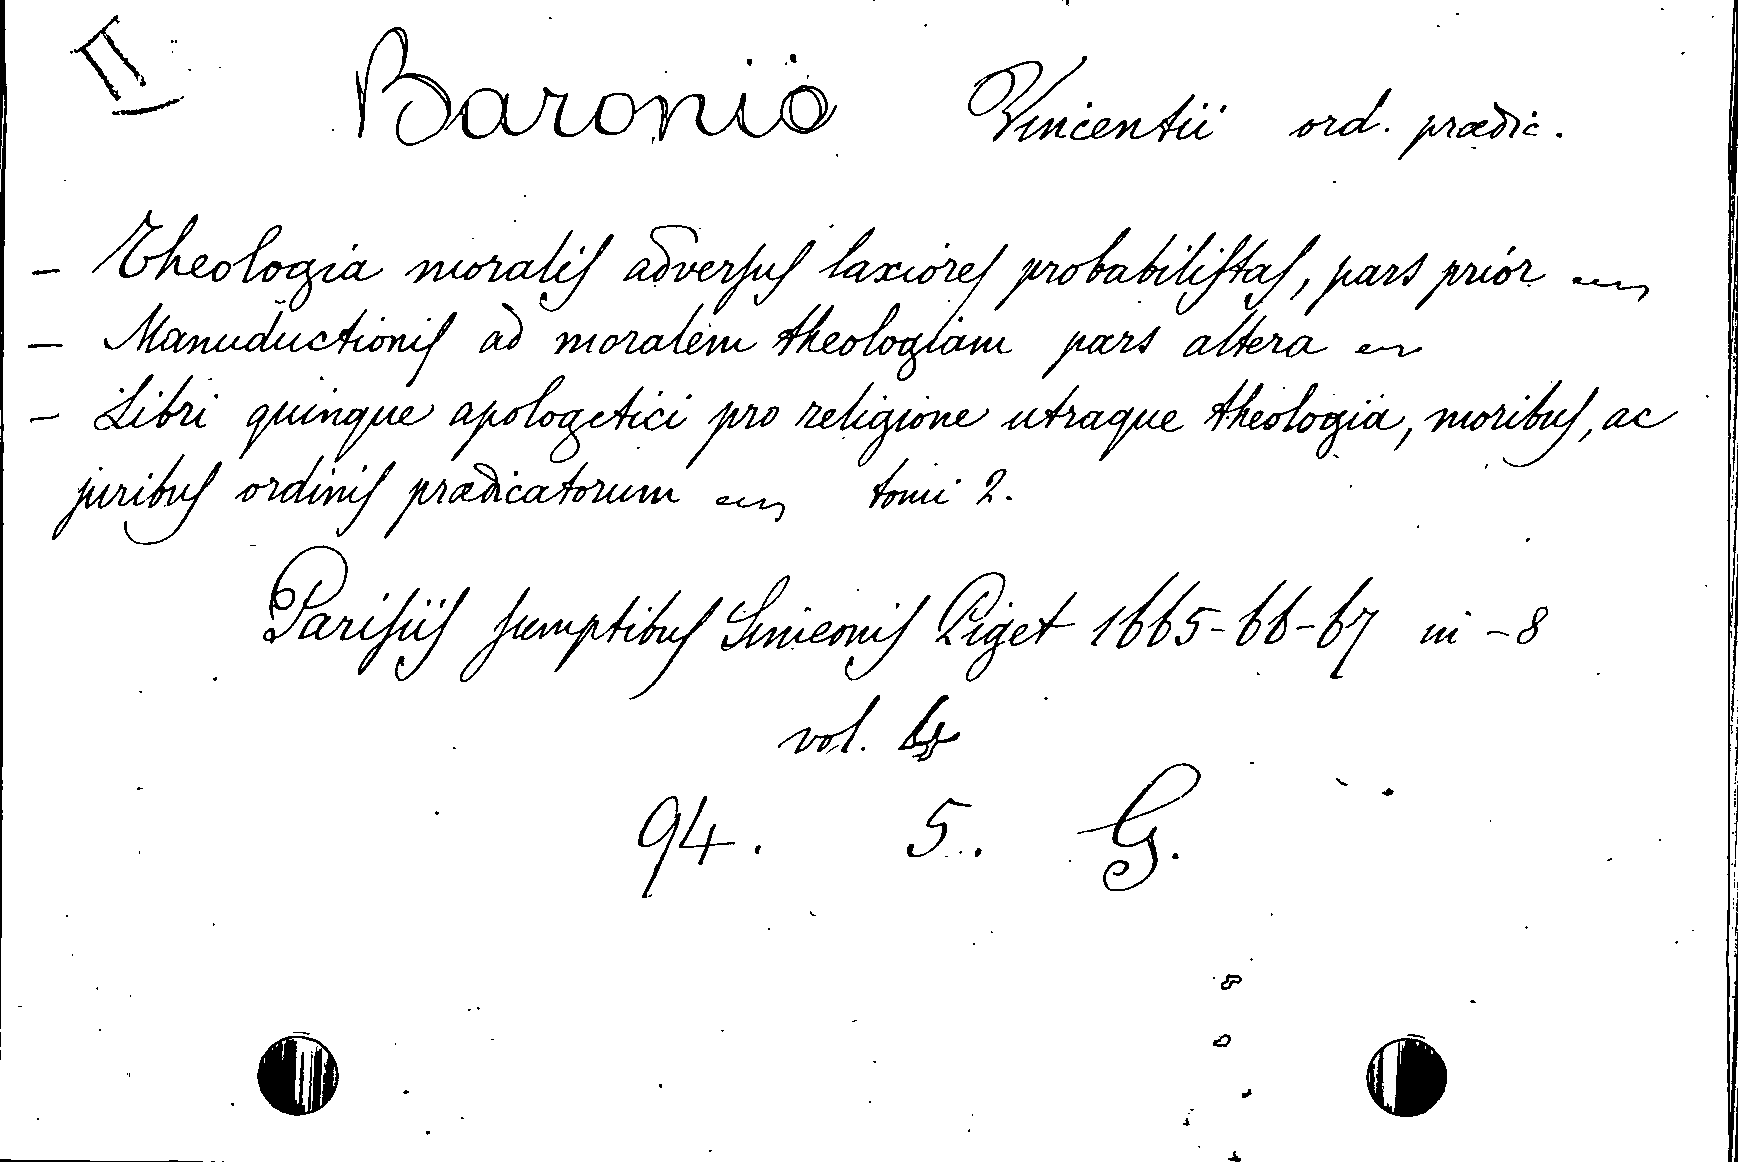 II
Baronio Vincentii ord. prædic.
- Theologia moralis adversus laxiores probabilistas, pars prior
- Manuductionis ad moralem theologiam pars altera
- Libri quinque apologetici pro religione utraque theologia, moribus, ac
juribus ordinis prædicatorum tomi 2.
Parisiis sumptibus Simeonis Piget 1665-66-67 in -8
vol.
94. 5. G.